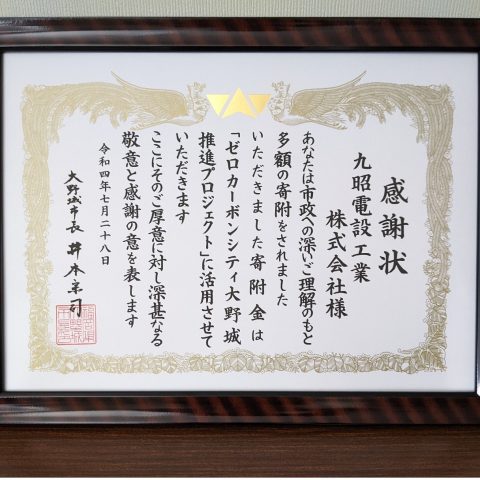 感謝状
九昭電設工業
株式会社様
あなたは市政への深いご理解のもと
多額の寄附をされました
いただきました寄附金は
「ゼロカーボンシティ大野城
推進プロジェクト」に活用させて
いただきます
ここにそのご厚意に対し深甚なる
敬意と感謝の意を表します
令和四年七月二十八日
大野城市長 井本宗司